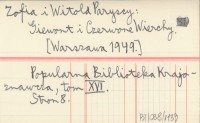 Zofia i Witold Paryscy:
Giewont i Czerwone Wierchy.
[Warszawa 1949.]
Popularna Biblioteka Krajo-
znawcza, tom XVI.
Stron 8.